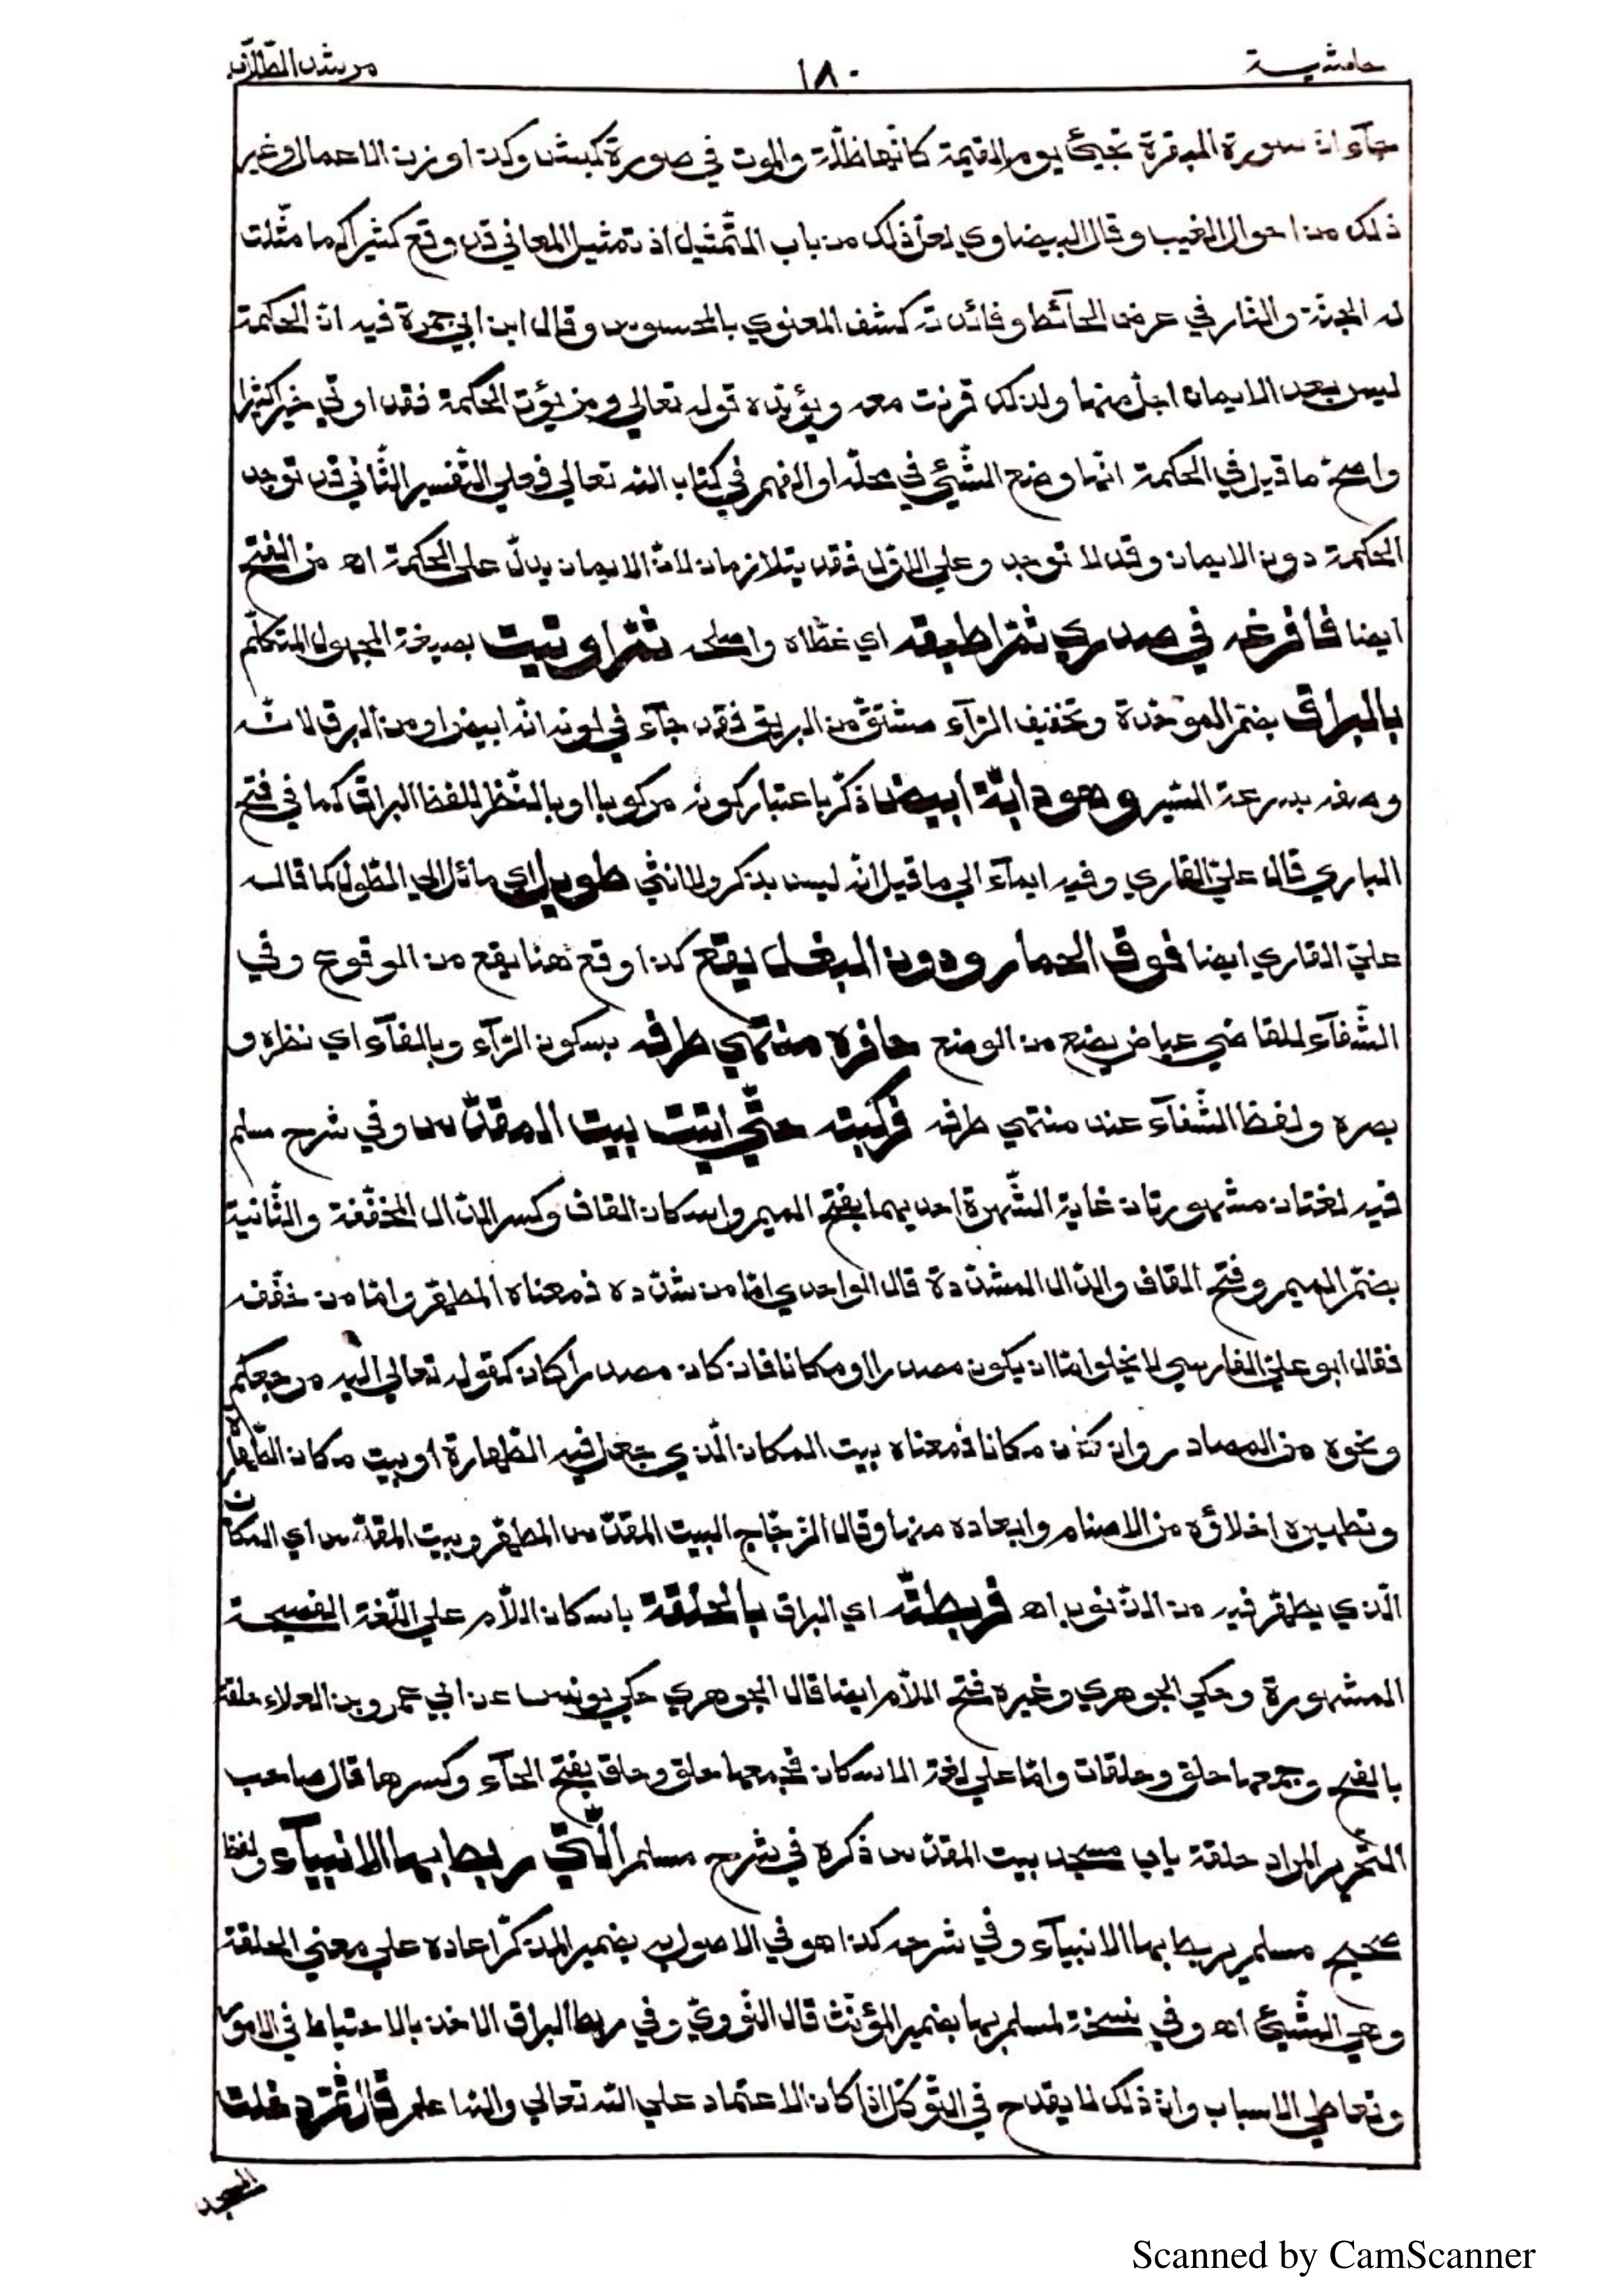 حاشية ١٨٠ مرشد الطلاب
جآء انّ سورة البقرة تجيئ يوم القيمة كانّها ظلّة والموت في صورة كبش وكذا وزن الاعمال وغير
ذلك من احوال الغيب وقال البيضاوي لعلّ ذلك من باب التّمثيل اذ تمثيل المعاني قد وقع كثيرا كما مثّلت
له الجنّة والنّار في عرض الحآئط وفائدته كشف المعنوي بالمحسوس وقال ابن ابي جمرة فيه انّ الحكمة
ليس بعد الايمان اجلّ منها ولذلك قرنت معه ويؤيّده قوله تعالي ومن يؤت الحكمة فقد اوتي خيرا كثيرا
واصحّ ما قيل في الحكمة انّها وضع الشّيئ في محلّه او الفهم في كتاب الله تعالي فعلي التّفسير الثّاني قد توجد
الحكمة دون الايمان وقد لا توجد وعلي الاوّل فقد يتلازمان لانّ الايمان يدلّ علي الحكمة اه من الفتح
ايضا فأفرغه في صدري ثمّ اطبقه اي غطّاه واصلحه ثمّ اوتيت بصيغة المجهول المتكلّم
بالبراق بضمّ الموحّدة وتخفيف الرّآء مشتقّ من البريق فقد جآء في لونه انّه ابيض او من البرق لانّه
وصفه بسرعة السّير وهو دابّة أبيض ذكّر باعتبار كونه مركوبا او بالنّظر للفظ البراق كما في فتح
الباري قال عليّ القاري وفيه ايمآء الي ما قيل انّه ليس بذكر ولا انثي طويل اي مائل الي الطّول كما قاله
عليّ القاري ايضا فوق الحمار ودون البغل يقع كذا وقع هنا يقع من الوقوع وفي
الشّفآء للقاضي عياض يضع من الوضع حافره منتهي طرفه بسكون الرّآء وبالفآء اي نظره و
بصره ولفظ الشّفآء عند منتهي طرفه فركبته حتّي اتيت بيت المقدّس وفي شرح مسلم
فيه لغتان مشهورتان غاية الشّهرة احديهما بفتح الميم واسكان القاف وكسر الدّال المخفّفة والثّانية
بضمّ الميم وفتح القاف والدّال المشدّدة قال الواحدي امّا من شدّده فمعناه المطهّر وامّا من خفّفه
فقال ابو عليّ الفارسي لا يخلو امّا ان يكون مصدرا او مكانا فان كان مصدرا كان كقوله تعالي اليه مرجعكم
ونحوه من المصادر وان كان مكانا فمعناه بيت المكان الّذي جعل فيه الطّهارة او بيت مكان الطّهارة
وتطهيره اخلاؤه من الاصنام وابعاده منها وقال الزّجّاج البيت المقدّس المطهّر وبيت المقدّس اي المكان
الّذي يطهّر فيه من الذّنوب اه فربطتّه اي البراق بالحلقة باسكان اللاّم علي اللّغة الفصيحة
المشهورة وحكي الجوهري وغيره فتح اللاّم ايضا قال الجوهري حكي يونس عن ابي عمرو بن العلاء حلقة
بالفتح وجمعها حلق وحلقات وامّا علي لغة الاسكان فجمعها حلق وحلق بفتح الحآء وكسرها قال صاحب
التّحرير المراد حلقة باب مسجد بيت المقدّس ذكره في شرح مسلم الّتي ربط بها الانبيآء ولفظ
صحيح مسلم يربط بها الانبيآء وفي شرحه كذا هو في الاصول به بضمير المذكّر اعاده علي معني الحلقة
وهي الشّيئ اه وفي نسخة لمسلم بها بضمير المؤنّث قال النّوويّ وفي ربط البراق الاخذ بالاحتياط في الامور
وتعاطي الاسباب وانّ ذلك لا يقدح في التّوكّل اذا كان الاعتماد علي الله تعالي والله اعلم قال ثمّ دخلت
المسجد
Scanned by CamScanner